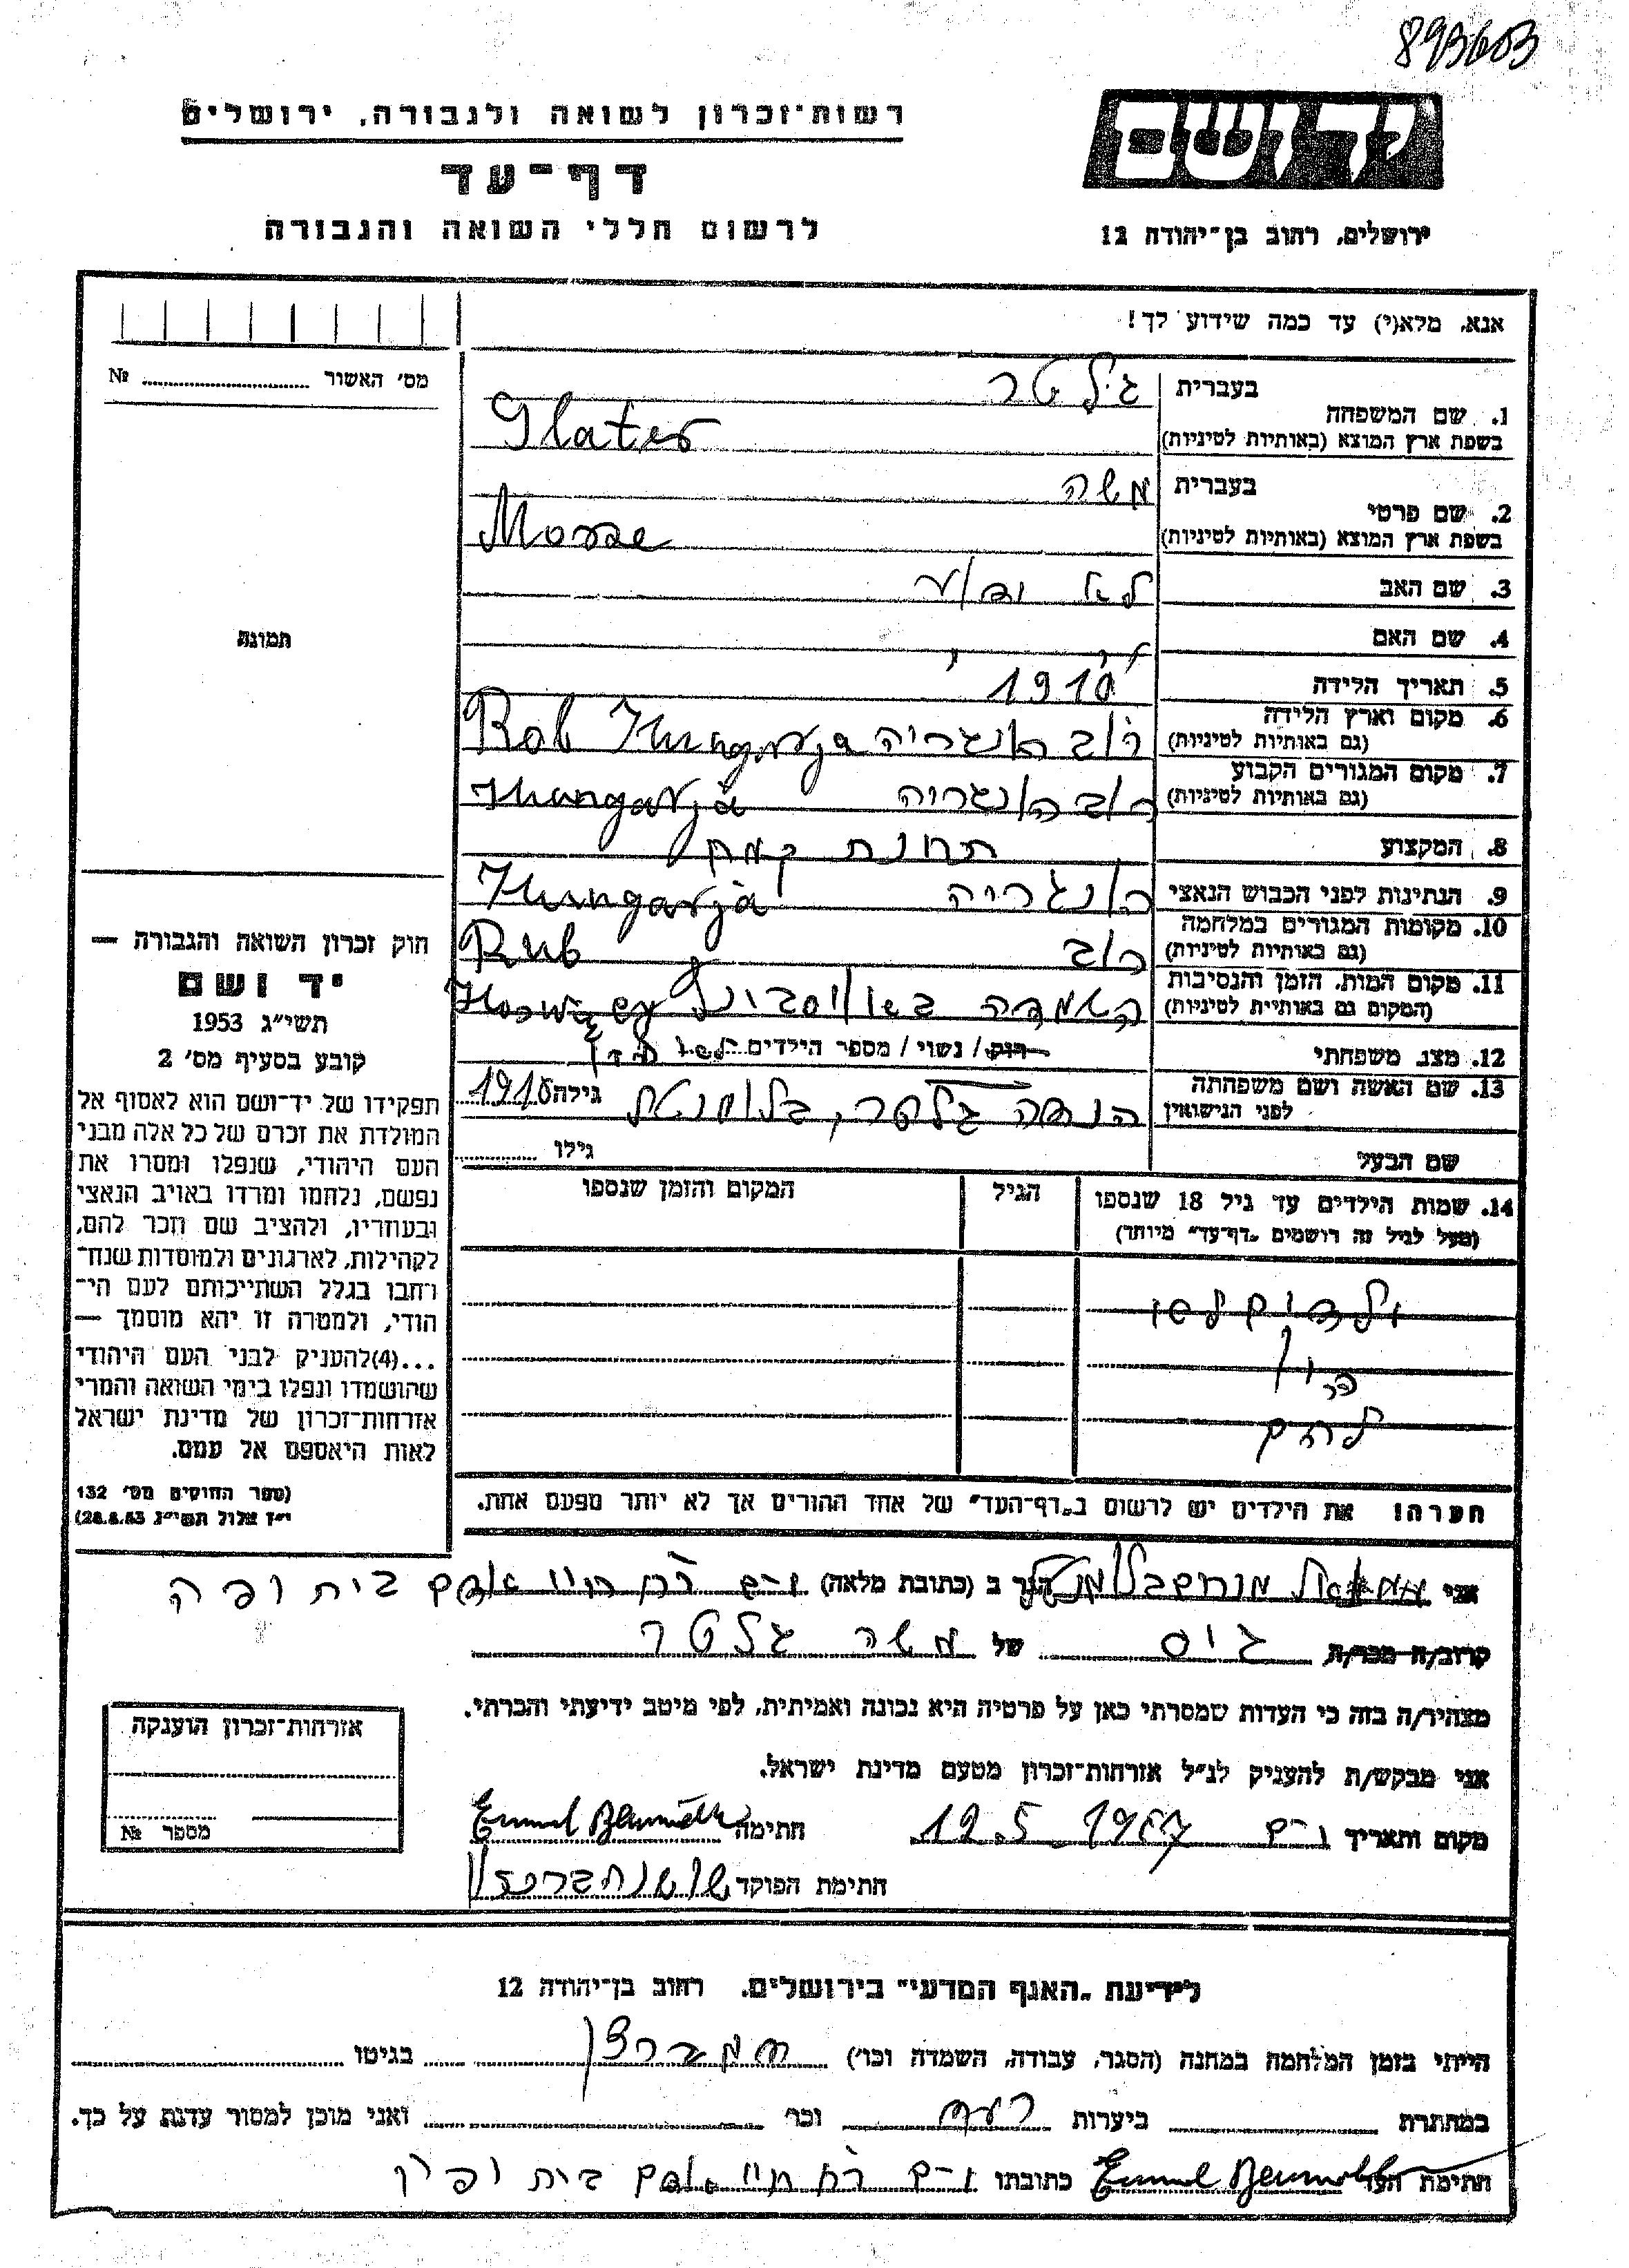 893603
רשות־זכרון לשואה ולגבורה, ירושלים
דף־עד
לרשום חללי השואה והגבורה
יד ושם
ירושלים, רחוב בן־יהודה 12
אנא, מלא(י) עד כמה שידוע לך!
מס׳ האשור № ..........
1. שם המשפחה בעברית גלטר
בשפת ארץ המוצא (באותיות לטיניות) Glater
2. שם פרטי בעברית משה
בשפת ארץ המוצא (באותיות לטיניות) Mosze
3. שם האב לא
4. שם האם
5. תאריך הלידה 1910
6. מקום וארץ הלידה
(גם באותיות לטיניות) רוב הונגריה Rob Hungarja
7. מקום המגורים הקבוע
(גם באותיות לטיניות) רוב הונגריה Hungarja
8. המקצוע תחנת קמח
9. הנתינות לפני הכבוש הנאצי הונגריה Hungarja
10. מקומות המגורים במלחמה
(גם באותיות לטיניות) רוב Rub
11. מקום המות, הזמן והנסיבות
(המקום גם באותיות לטיניות) השמדה
12. מצב משפחתי רוק / נשוי / מספר הילדים
13. שם האשה ושם משפחתה
לפני הנישואין גלטר, גילה 1910
שם הבעל גילו ..........
14. שמות הילדים עד גיל 18 שנספו
(מעל לגיל זה רושמים „דף־עד״ מיוחד)
הגיל
המקום והזמן שנספו
הערה! את הילדים יש לרשום ב„דף־העד״ של אחד ההורים אך לא יותר מפעם אחת.
תמונה
חוק זכרון השואה והגבורה —
יד ושם
תשי״ג 1953
קובע בסעיף מס׳ 2
תפקידו של יד־ושם הוא לאסוף אל
המולדת את זכרם של כל אלה מבני
העם היהודי, שנפלו ומסרו את
נפשם, נלחמו ומרדו באויב הנאצי
ובעוזריו, ולהציב שם וזכר להם,
לקהילות, לארגונים ולמוסדות שנח־
רבו בגלל השתייכותם לעם הי־
הודי, ולמטרה זו יהא מוסמך —
...(4)להעניק לבני העם היהודי
שהושמדו ונפלו בימי השואה והמרי
אזרחות־זכרון של מדינת ישראל
לאות היאספם אל עמם.
(ספר החוקים מס׳ 132
י״ז אלול תשי״ג 28.8.53)
אני הגר ב (כתובת מלאה)
קרוב/ה מכר/ת גיס של משה גלטר
מצהיר/ה בזה כי העדות שמסרתי כאן על פרטיה היא נכונה ואמיתית, לפי מיטב ידיעתי והכרתי.
אני מבקש/ת להעניק לנ״ל אזרחות־זכרון מטעם מדינת ישראל.
מקום ותאריך 12.5.1957 חתימה
חתימת הפוקד
אזרחות־זכרון הוענקה
מספר №
לידיעת „האגף המדעי״ בירושלים, רחוב בן־יהודה 12
הייתי בזמן המלחמה במחנה (הסגר, עבודה, השמדה וכו׳) בגיטו
במחתרת ביערות וכו׳ ואני מוכן למסור עדות על כך.
חתימת העד כתובתו